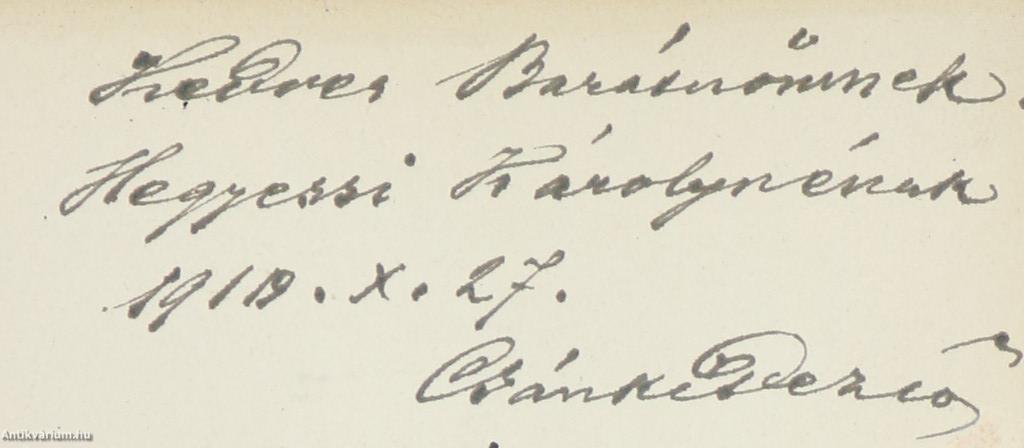 Kedves Barátnőmnek
Hegyessi Károlynénak
X. 27.
Csánki Dezső
Antikvárium.hu